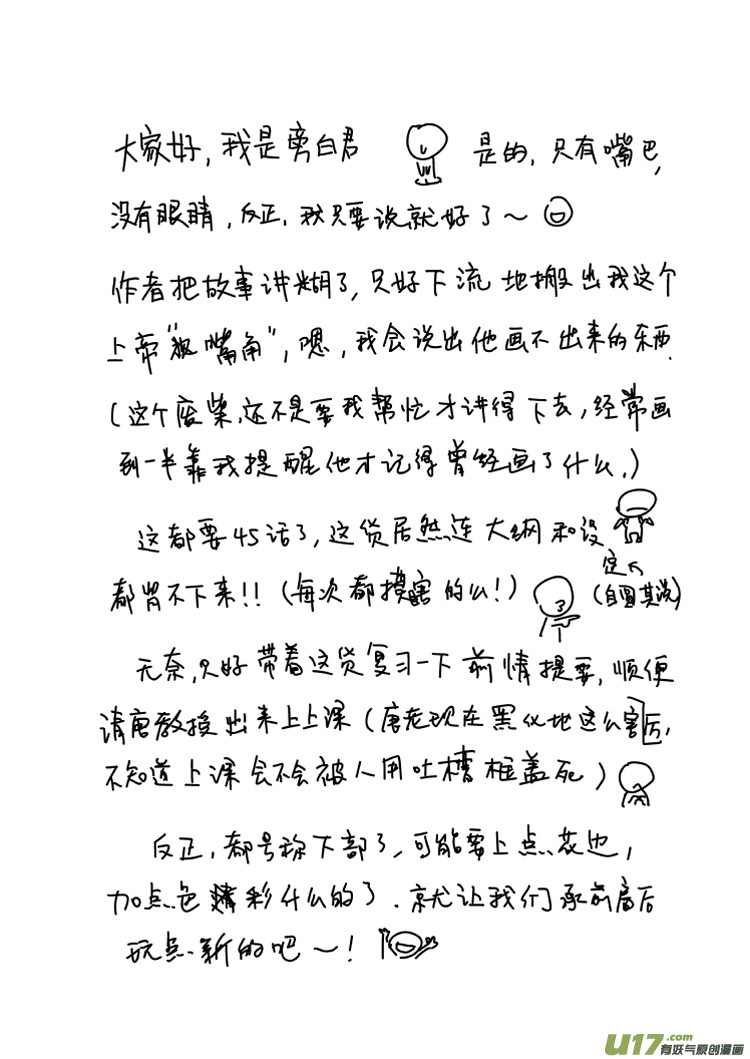 大家好，我是旁白君 是的，只有嘴巴，
没有眼睛，反正，我只要说就好了～
作者把故事讲糊了，只好下流地搬出我这个
上帝“狐嘴角”，嗯，我会说出他画不出来的东西.
（这个废柴，还不是要我帮忙才讲得下去，经常画
到一半靠我提醒他才记得曾经画了什么.）
这都要45话了，这货居然连大纲和设
定
都背不下来！！（每次都摸 的么！）（自圆其说）
无奈，只好带着这货复习一下前情提要，顺便
请唐教授出来上上课（唐老现在黑化地这么害厉，
不知道上课会不会被人用吐槽框盖死）
反正，都号称下部了，可能要上点花边，
加点色 彩什么的了.就让我们承前启后
玩点新的吧～！
U17.com
有妖气原创漫画